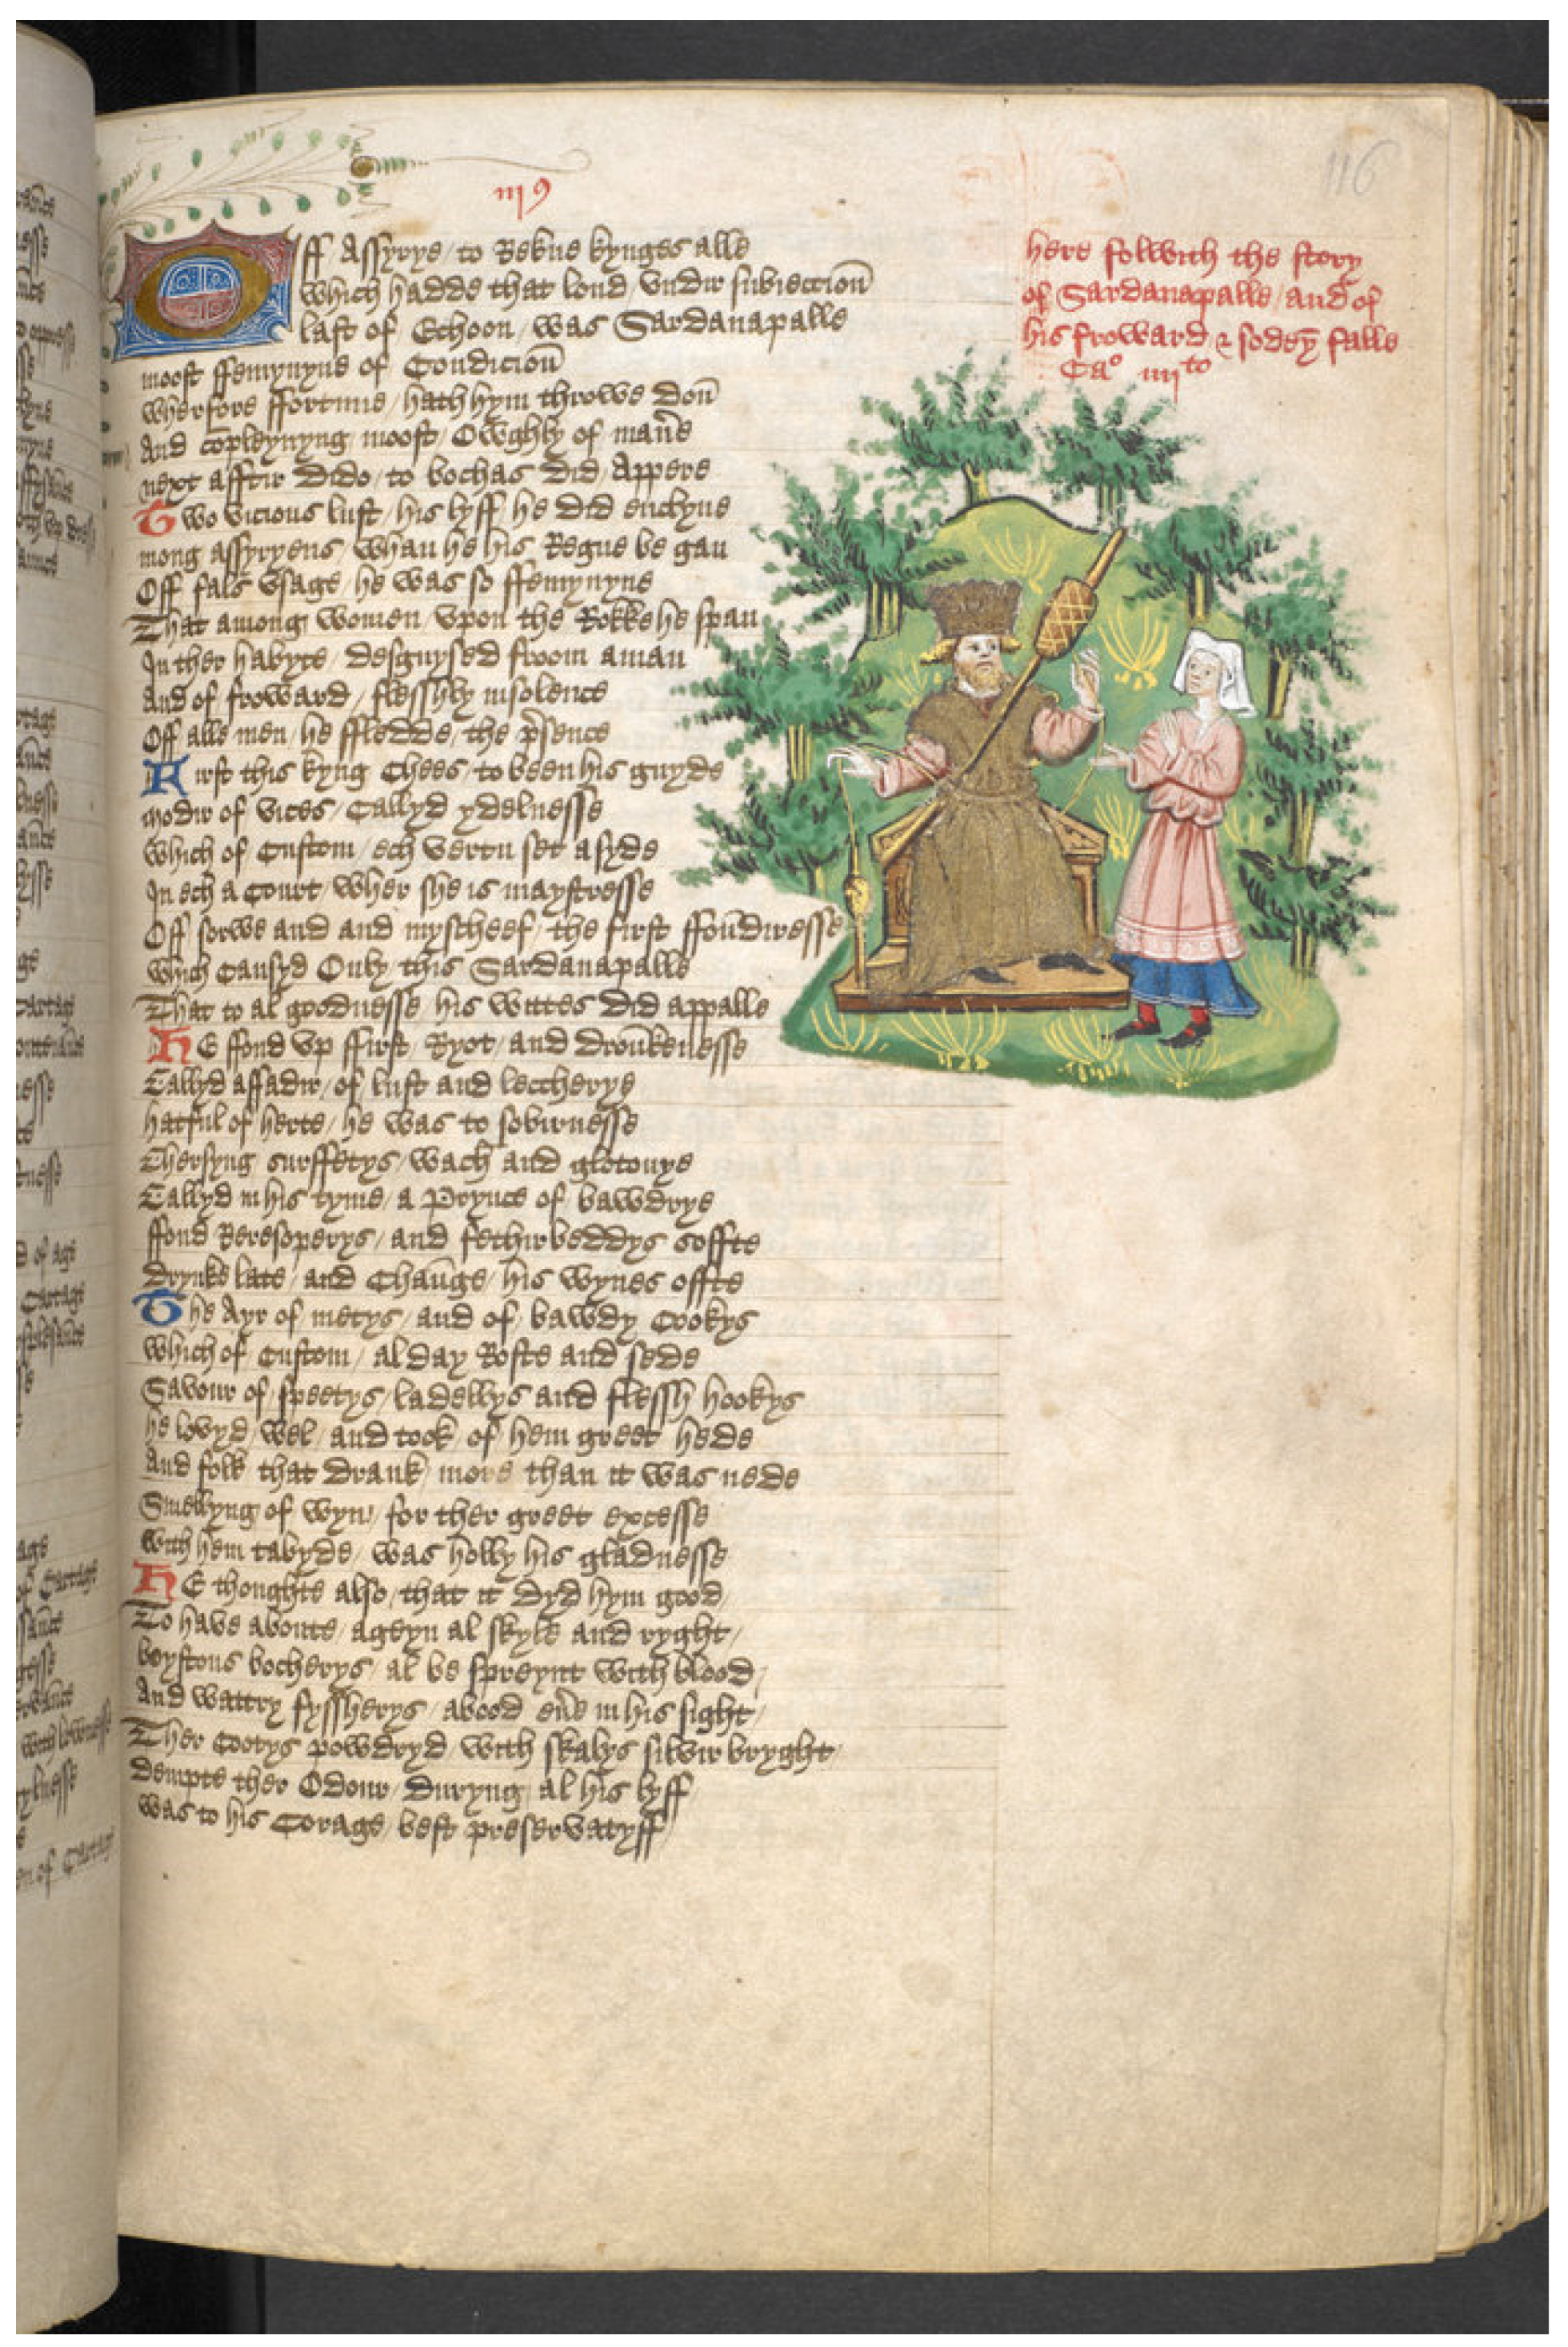 116
iiij
Off Assyrye / to Rekne kynges alle
which hadde that lond / vndir subieccioū
last of Echoon / was Sardanapalle
moost ffemynyne of Condicioū
wherfore ffortune / hath hym throwe doū
And cōpleynyng moost / Owghly of man̄e
next afftir Dido / to bochas did / Appere
Two vicious lust / his lyff / he did enclyne
mong assyryens / whan he his Regne be gan
Off fals vsage / he was so ffemynyne
That among women / vpon the Rokke he span
In ther habyte / desguysed froom aman
And of froward / flesshly insolence
Off alle men / he ffledde / the p̄sence
First this kyng Chees / to been his guyde
modir of vices / Callyd ydelnesse
Which of Custom / ech vertu set asyde
In ech a Court / wher she is maystresse
Off sorwe and and myscheef / the first ffoūdiresse
Which Causyd Only / this Sardanapalle
That to al goodnesse / his wittes did appalle
HE ffond vp ffirst / Ryot / and droūkenesse
Callyd affadir / of lust and leccherye
hatful of herte / he was to sobirnesse
Chersyng surffetys / wach and glotonye
Callyd in his tyme / a Prynce of bawdrye
ffond Reresoperys / and fethirbeddys soffte
drynke late / and Chaūge / his wynes offte
The Ayr of metys / and of / bawdy Cookys
which of Custom / al day Roste and sede
Savour of / speetys / ladellys and flessh hookys
he lovyd / wel / and took / of hem greet hede
And folk that drank / more than it was nede
Smellyng of wyn / for ther greet excesse
with hem tabyde / was holly his gladnesse
HE thoughte also / that it dyd hym good /
To have aboute / ageyn al skyle and ryght /
boystous bocherys / al be spreynt with blood /
And wattry fyssherys / abood en̄e in his sight /
Ther Cootys powdryd / with skalys silvir bryght /
dempte ther Odour / duryng / al his lyff /
was to his Corage / best preservatyff /
here folwith the story
of Sardanapalle / and of
his froward & sodeȳ falle
Cao iiiito